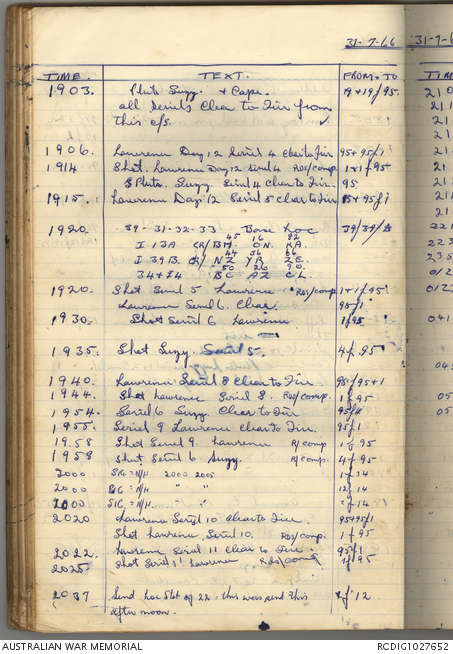 31-7-66
31-7-6
TIME. TEXT. FROM. TO TIM
1903. Photo Suzy. + Cape. 19+19/95.
all serials Clear to Fire from
this c/s.
1906. Lawrence Day 12 Serial 4 Clear to Fire 95+95f1
1914 Shot. Lawrence Day 12 Serial 4 Rds/comp 1+1f95
& Photo. Suzy. Serial 4 Clear to Fire. 95
1915. Lawrence Day 12 Serial 5 clear to Fire 95+95f1
1920. 39-31-32-33 Base Loc
45 16 82
I 13A CR/BM. ON. KA.
44 36 66
I 39B. CR/ NZ YR ZE.
50 26 90
34+84 BC AZ CL.
1920. Shot Serial 5 Lawrence Rds/comp 1+1f95
Lawrence Serial 6. Clear. 95f1
1930. Shot Serial 6 Lawrence 1f95
1935. Shot Suzy. Serial 5. 4f95
1940. Lawrence Serial 8 Clear to Fire. 95f95+1
1944. Shot Lawrence Serial 8. Rds/comp. 1f95
1954. Serial 6 Suzy Clear to Fire 95f4
1955. Serial 9 Lawrence Clear to Fire. 95f1
1958 Shot Serial 9. Lawrence R/comp 1f95
1958 Shot Serial 6 Suzy. R/comp. 4f95
2000 SIG = N/H 2000 2005 1f14
2000 SIG = N/H " " 12f14
2000 SIG = N/H. " " f14
2020 Lawrence Serial 10 Clear to Fire. 95+95f1
Shot Lawrence Serial 10. Rds/comp. 1f95
2022. Lawrence Serial 11 Clear to Fire. 95f1
2025. Shot Serial 11 Lawrence Rds/comp 1f95
2037 Send Loc Stat of 22. this was send this f12
after noon.
AUSTRALIAN WAR MEMORIAL
RCDIG1027652